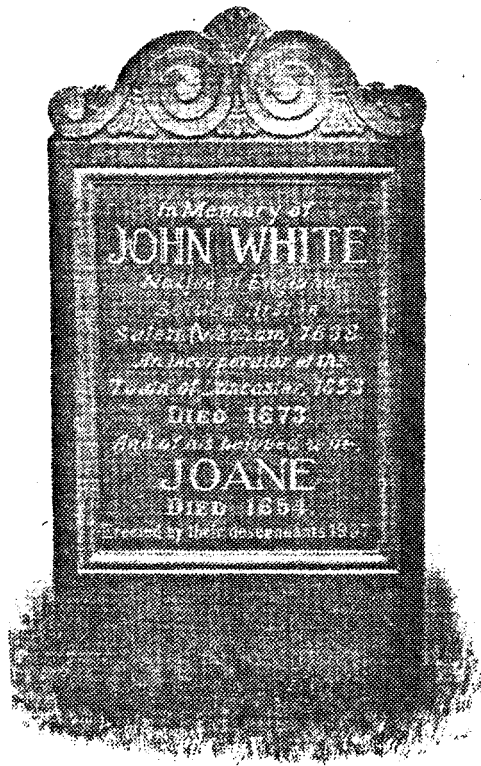 In Memory of
JOHN WHITE
Native of England.
Settled first in
Salem (Wenham) 1638.
An incorporator of the
Town of Lancaster, 1653
DIED 1673
And of his beloved wife,
JOANE
DIED 1654.
Erected by their descendants